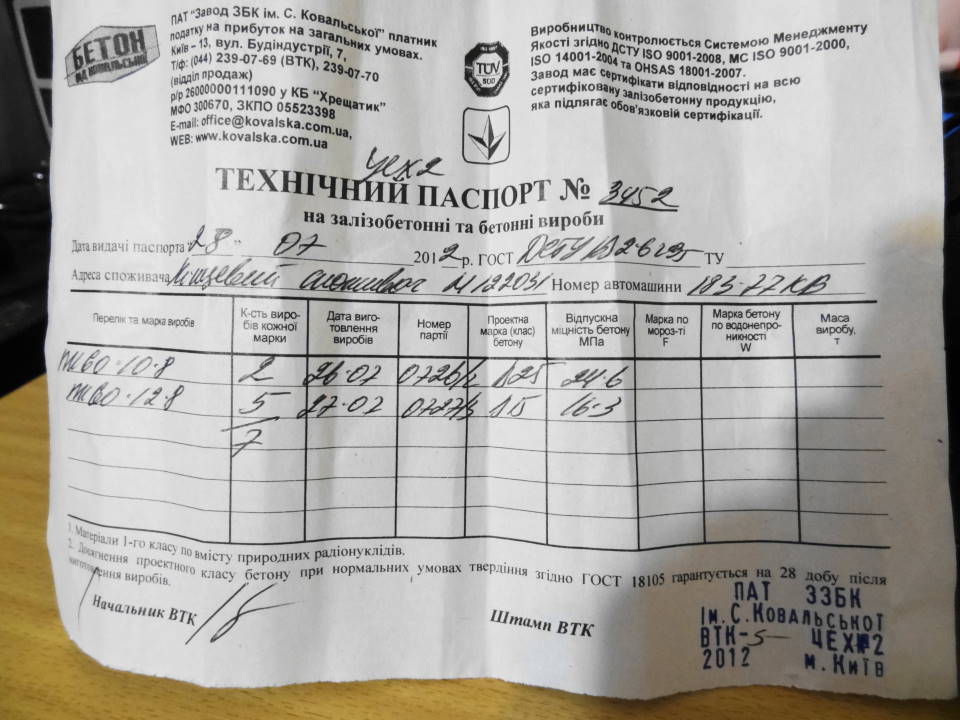 БЕТОН
ВІД КОВАЛЬСЬКОЇ
ПАТ “Завод ЗБК ім. С. Ковальської” платник
податку на прибуток на загальних умовах.
Київ – 13, вул. Будіндустрії, 7,
Т/ф: (044) 239-07-69 (ВТК), 239-07-70
(відділ продаж)
р/р 26000000111090 у КБ “Хрещатик”
МФО 300670, ЗКПО 05523398
E-mail: office@kovalska.com.ua,
WEB: www.kovalska.com.ua
TÜV
Виробництво контролюється Системою Менеджменту
Якості згідно ДСТУ ISO 9001-2008, МС ISO 9001-2000,
ISO 14001-2004 та OHSAS 18001-2007.
Завод має сертифікати відповідності на всю
сертифіковану залізобетонну продукцію,
яка підлягає обов'язковій сертифікації.
Цех 2
ТЕХНІЧНИЙ ПАСПОРТ № 3452
на залізобетонні та бетонні вироби
Дата видачі паспорта “28” 07 2012р. ГОСТ ДСТУ ТУ
Адреса споживача Номер автомашини 183-77КВ
Перелік та марка виробів К-сть виробів кожної марки Дата виготовлення виробів Номер партії Проектна марка (клас) бетону Відпускна міцність бетону МПа Марка по мороз-ті F Марка бетону по водонепроникності W Маса виробу, т
ПК60-10-8 2 26-07 24-6
ПК60-12-8 5 27-07 16-3
7
1. Матеріали 1-го класу по вмісту природних радіонуклідів.
2. Досягнення проектного класу бетону при нормальних умовах твердіння згідно ГОСТ 18105 гарантується на 28 добу після
виготовлення виробів.
Начальник ВТК
Штамп ВТК
ПАТ ЗЗБК
ім.С.Ковальської
ВТК-5 ЦЕХ№2
2012 м.Київ